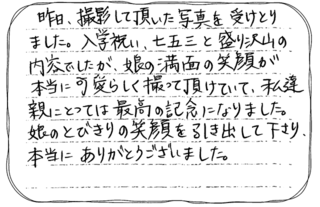 昨日、撮影して頂いた写真を受けとり
ました。入学祝い、七五三と盛り沢山の
内容でしたが、娘の満面の笑顔が
本当に可愛らしく撮って頂けていて、私達
親にとっては最高の記念になりました。
娘のとびきりの笑顔を引き出して下さり、
本当にありがとうございました。